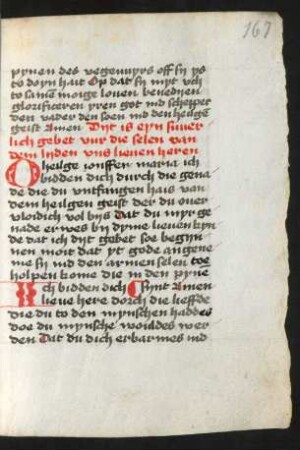 167
pynen des vegevuyrs off sy ys
to doyn hait Op dat sy myt vch
to samē moige loven benedien
glorificeren yren got und schepper
den vader den soen und den heilgē
geist Amen Dyt is eyn suver
lich gebet vur die selen van
dem lyden uns lieven heren
O heilge jonffer maria ich
bidden dich durch die gena
de die du untfangen hais van
dem heilgen geist der du over
vlodich vol bys Dat du myr ge
nade erwes by dyme lieven kyn
de dat ich dyt gebet soe begyn
nen moit dat yt gode angene
me sy und den armen selen toe
holpen kome die in den pyne
Ich bidden dich synt Amen
lieve here dorch die lieffde
die du to den mynschen haddes
doe du mynsche wouldes wer
den Dat du dich erbarmes und